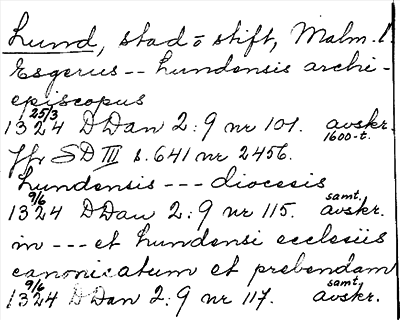 Lund, stad o stift, Malm. l.
Esgerus -- Lundensis archi-
episcopus
1324 25/3 DDan 2:9 nr 101. avskr. 1600-t.
Jfr SD III s. 641 nr 2456.
Lundensis --- diocesis
1324 9/6 DDan 2:9 nr 115. samt. avskr.
in --- et Lundensi ecclesiis
canonicatum et prebendam
1324 9/6 DDan 2:9 nr 117. samt. avskr.